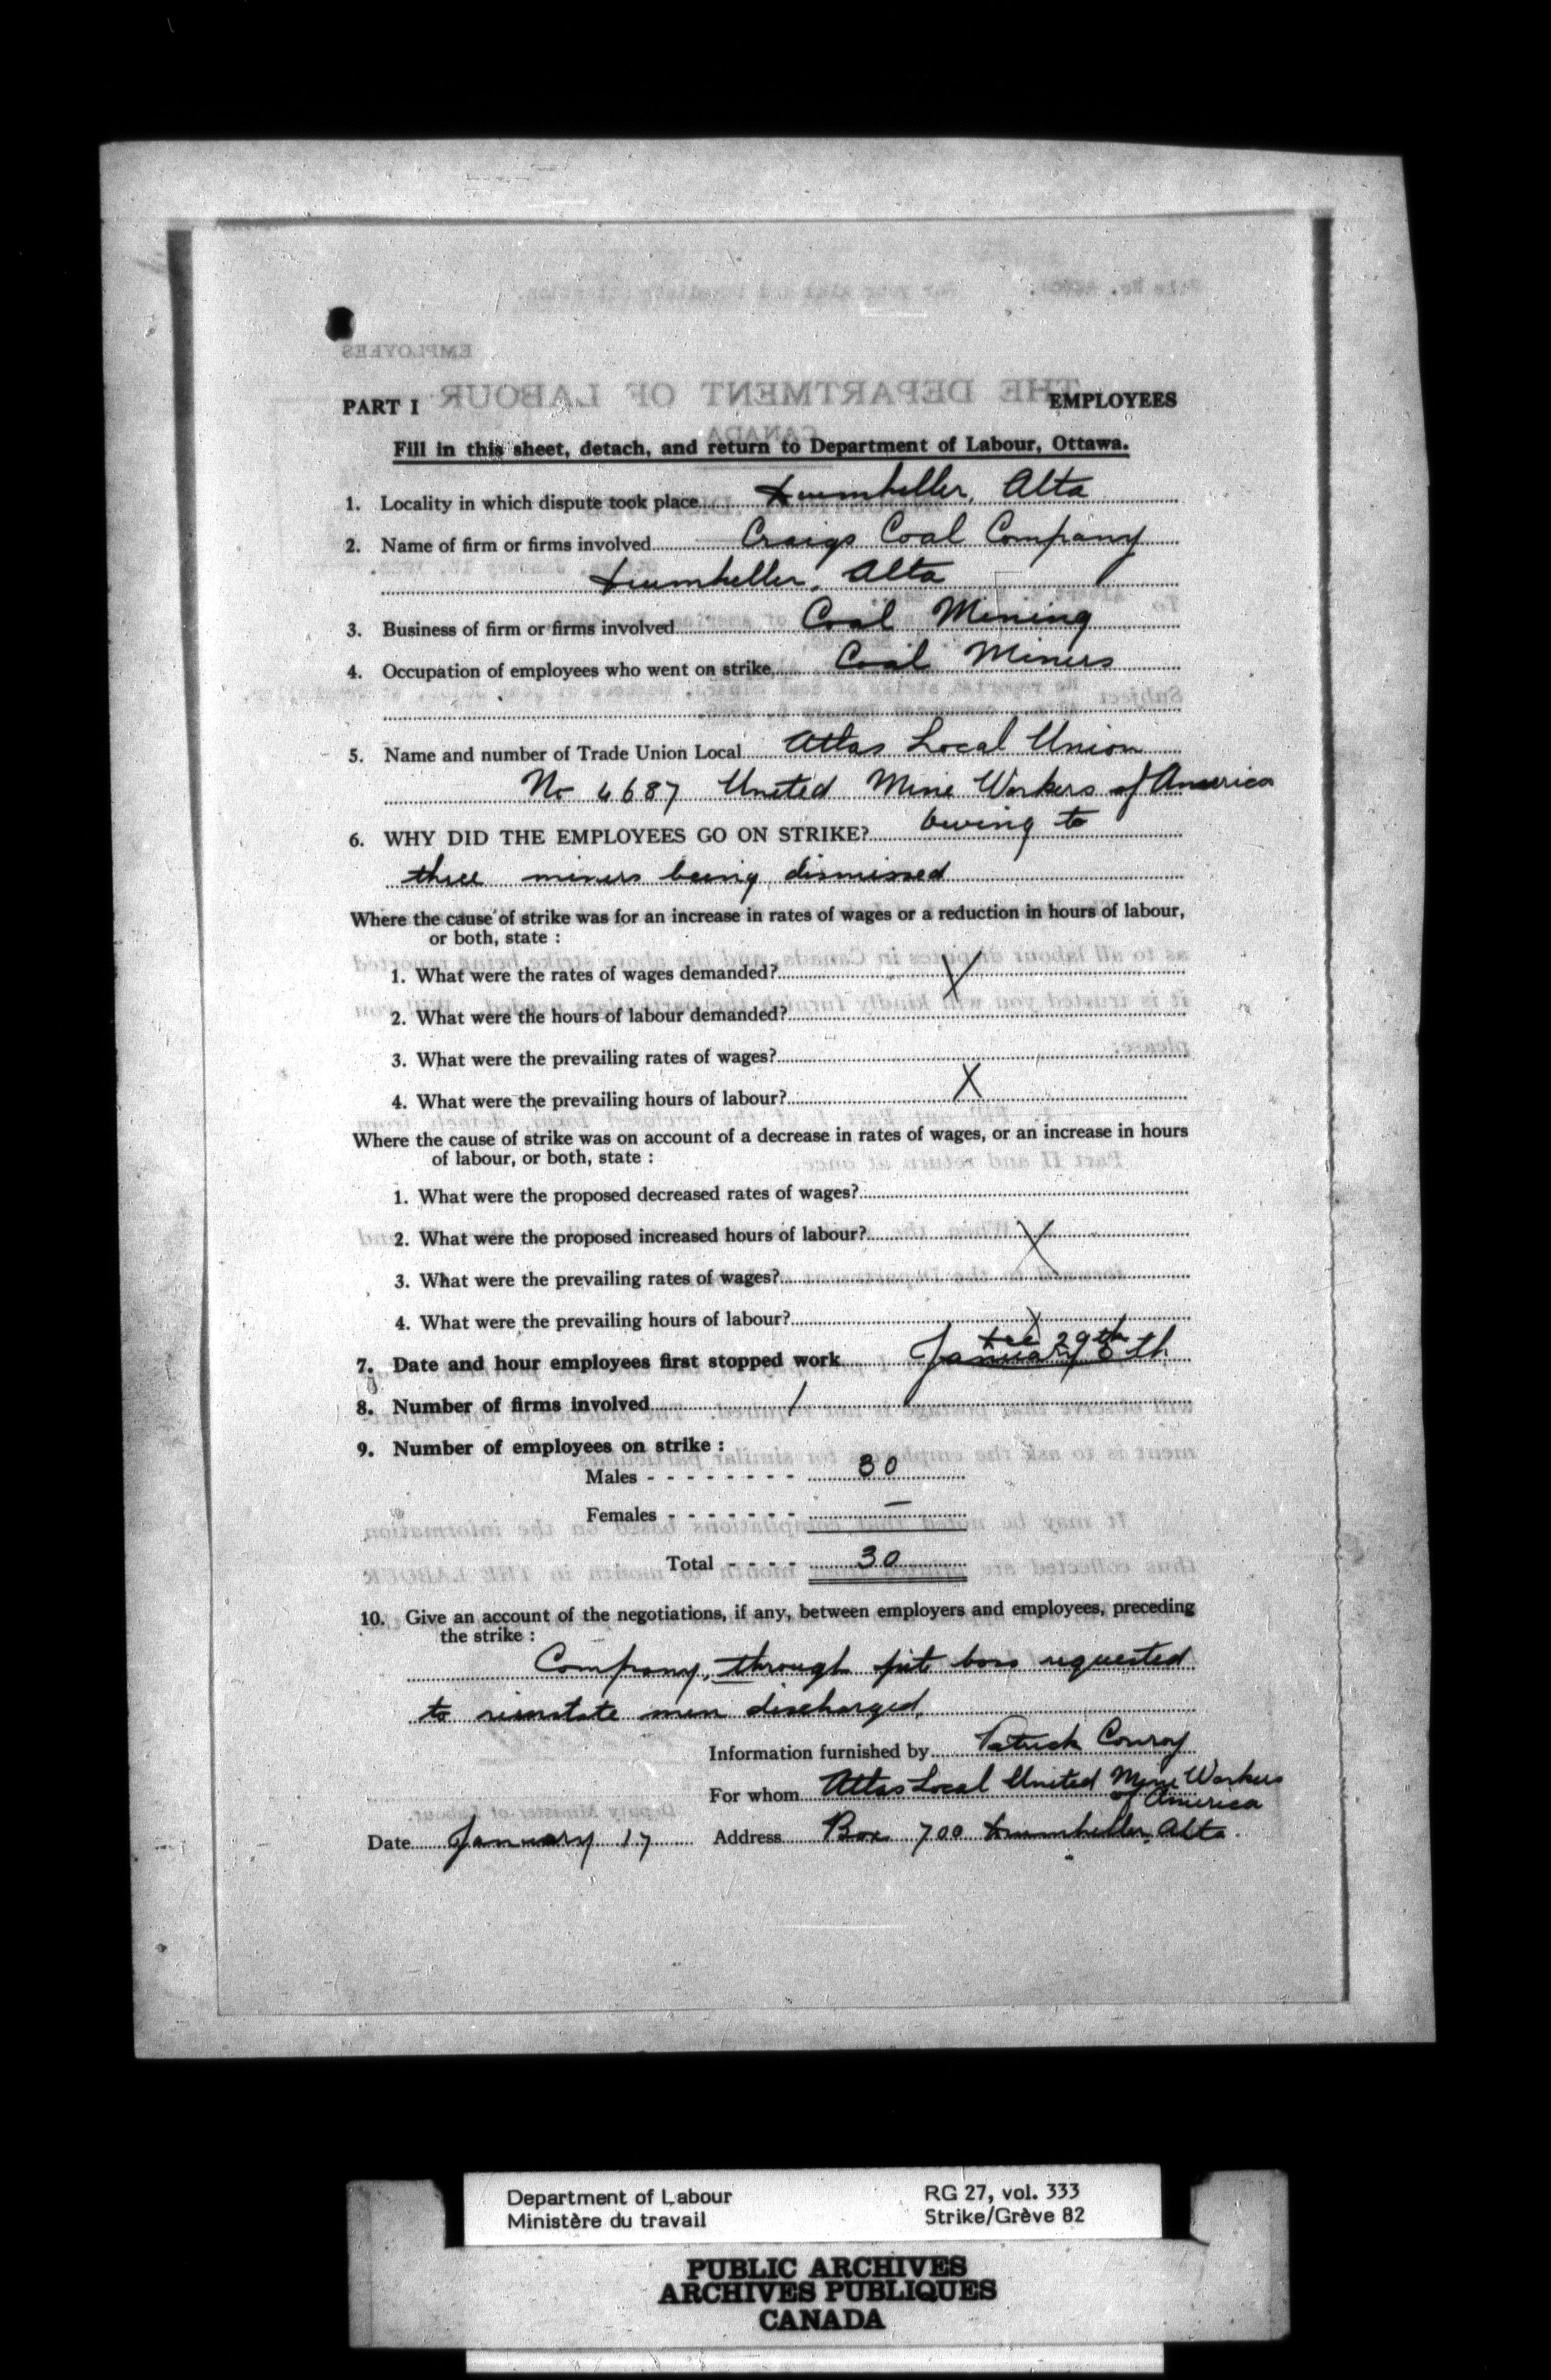 PART I EMPLOYEES
Fill in this sheet, detach, and return to Department of Labour, Ottawa.
1. Locality in which dispute took place Drumheller, Alta
2. Name of firm or firms involved Craigs Coal Company
Drumheller, Alta
3. Business of firm or firms involved Coal Mining
4. Occupation of employees who went on strike Coal Miners
5. Name and number of Trade Union Local Atlas Local Union
No 4687 United Mine Workers of America
6. WHY DID THE EMPLOYEES GO ON STRIKE? Owing to
three miners being dismissed
Where the cause of strike was for an increase in rates of wages or a reduction in hours of labour,
or both, state :
1. What were the rates of wages demanded? X
2. What were the hours of labour demanded?
3. What were the prevailing rates of wages?
4. What were the prevailing hours of labour? X
Where the cause of strike was on account of a decrease in rates of wages, or an increase in hours
of labour, or both, state :
1. What were the proposed decreased rates of wages?
2. What were the proposed increased hours of labour? X
3. What were the prevailing rates of wages?
4. What were the prevailing hours of labour? X
Dec 29th
7. Date and hour employees first stopped work January 6th
8. Number of firms involved 1
9. Number of employees on strike :
Males - - - - - - - - 30
Females - - - - - - - —
Total - - - - 30
10. Give an account of the negotiations, if any, between employers and employees, preceding
the strike :
Company, through pit boss requested
to reinstate men discharged.
Information furnished by Patrick Conroy
For whom Atlas Local United Mine Workers
of America
Date January 17 Address Box 700 Drumheller, Alta.
Department of Labour RG 27, vol. 333
Ministère du travail Strike/Grève 82
PUBLIC ARCHIVES
ARCHIVES PUBLIQUES
CANADA